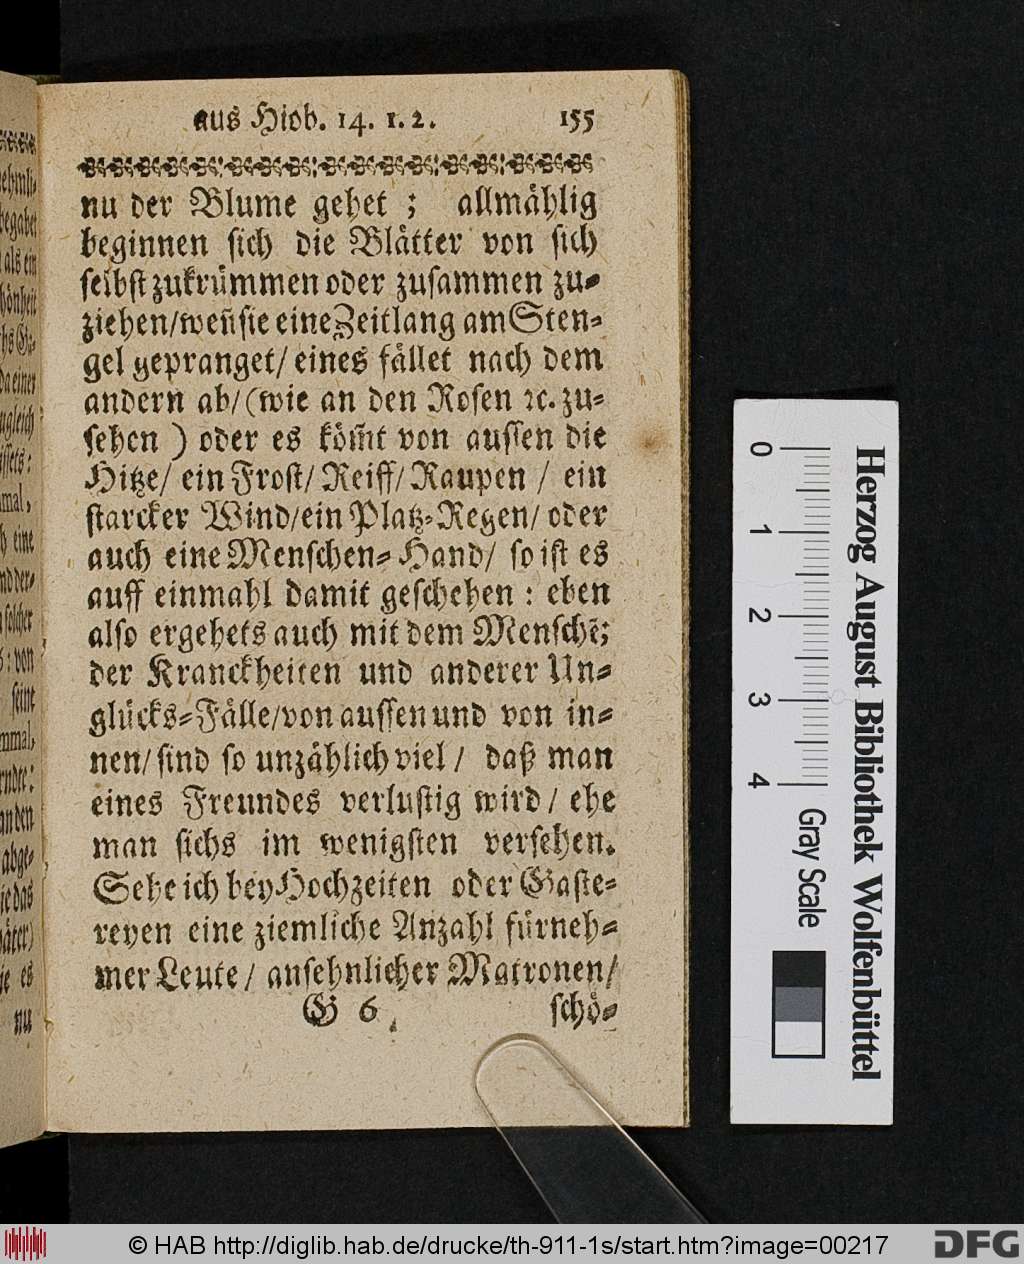 aus Hiob. 14. 1. 2. 155
nu der Blume gehet ; allmählig
beginnen sich die Blätter von sich
selbst zukrümmen oder zusammen zu-
ziehen/ weñ sie eine Zeitlang am Sten-
gel gepranget/ eines fället nach dem
andern ab/ (wie an den Rosen ꝛc. zu-
sehen ) oder es köm̃t von aussen die
Hitze/ ein Frost/ Reiff/ Raupen / ein
starcker Wind/ ein Platz-Regen/ oder
auch eine Menschen-Hand/ so ist es
auff einmahl damit geschehen : eben
also ergehets auch mit dem Menschẽ;
der Kranckheiten und anderer Un-
glücks-Fälle/ von aussen und von in-
nen/ sind so unzählich viel / daß man
eines Freundes verlustig wird / ehe
man sichs im wenigsten versehen.
Sehe ich bey Hochzeiten oder Gaste-
reyen eine ziemliche Anzahl fürneh-
mer Leute / ansehnlicher Matronen/
G 6 schö-
als ein
da einer
mal,
eine
solcher
: von
seine
an den
abge-
je das
je es
nu
0 1 2 3 4
Gray Scale
Herzog August Bibliothek Wolfenbüttel
© HAB http://diglib.hab.de/drucke/th-911-1s/start.htm?image=00217
DFG